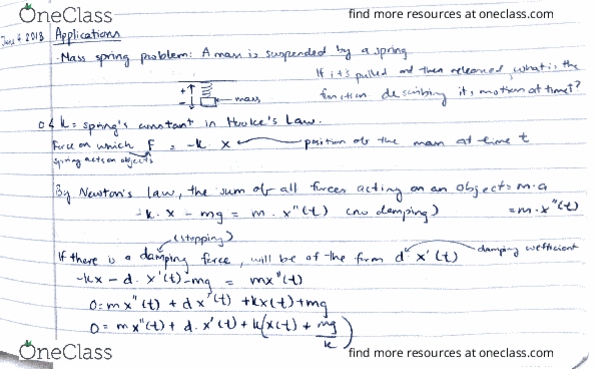 OneClass
find more resources at oneclass.com
June 4 2018 Applications
Mass spring problem: A mass is suspended by a spring
If it's pulled and then released, what is the
function describing its motion at time t?
+
-
mass
0 < k = spring's constant in Hooke's Law.
Force on which F = -k x position of the mass at time t
spring acts on objects
By Newton's law, the sum of all forces acting on an object = m·a
-k·x - mg = m·x"(t) (no damping) = m·x"(t)
(stopping)
If there is a damping force, will be of the form d·x'(t) damping coefficient
-kx - d·x'(t) - mg = mx"(t)
0 = mx"(t) + dx'(t) + kx(t) + mg
0 = mx"(t) + d·x'(t) + k(x(t) + mg/k)
OneClass
find more resources at oneclass.com